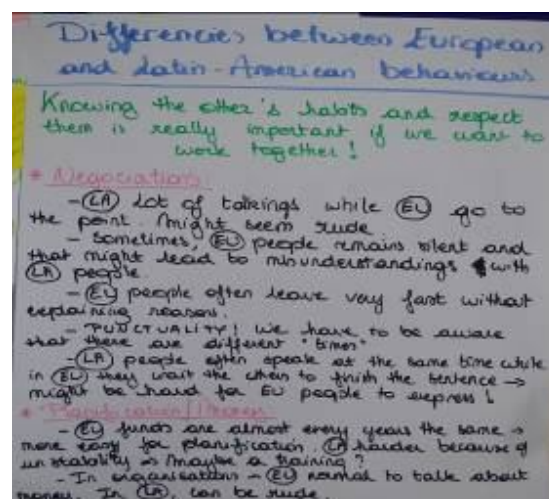 Differencies between European
and Latin-American behaviours
Knowing the other's habits and respect
them is really important if we want to
work together !
* Negociations:
- (LA) Lot of talkings while (EU) go to
the point. Might seem rude
- Sometimes, (EU) people remains silent and
that might lead to misunderstandings with
(LA) people.
- (EU) people often leave very fast without
explaining reasons.
- PUNCTUALITY! We have to be aware
that there are different "times"
- (LA) people often speak at the same time while
in (EU) they wait the others to finish the sentence →
might be hard for EU people to express !
* Planification/Money:
- (EU) funds are almost every years the same →
more easy for planification. (LA) harder because of
unstability → Maybe a training ?
- In organisations - (EU) normal to talk about
money. In (LA), can be rude.